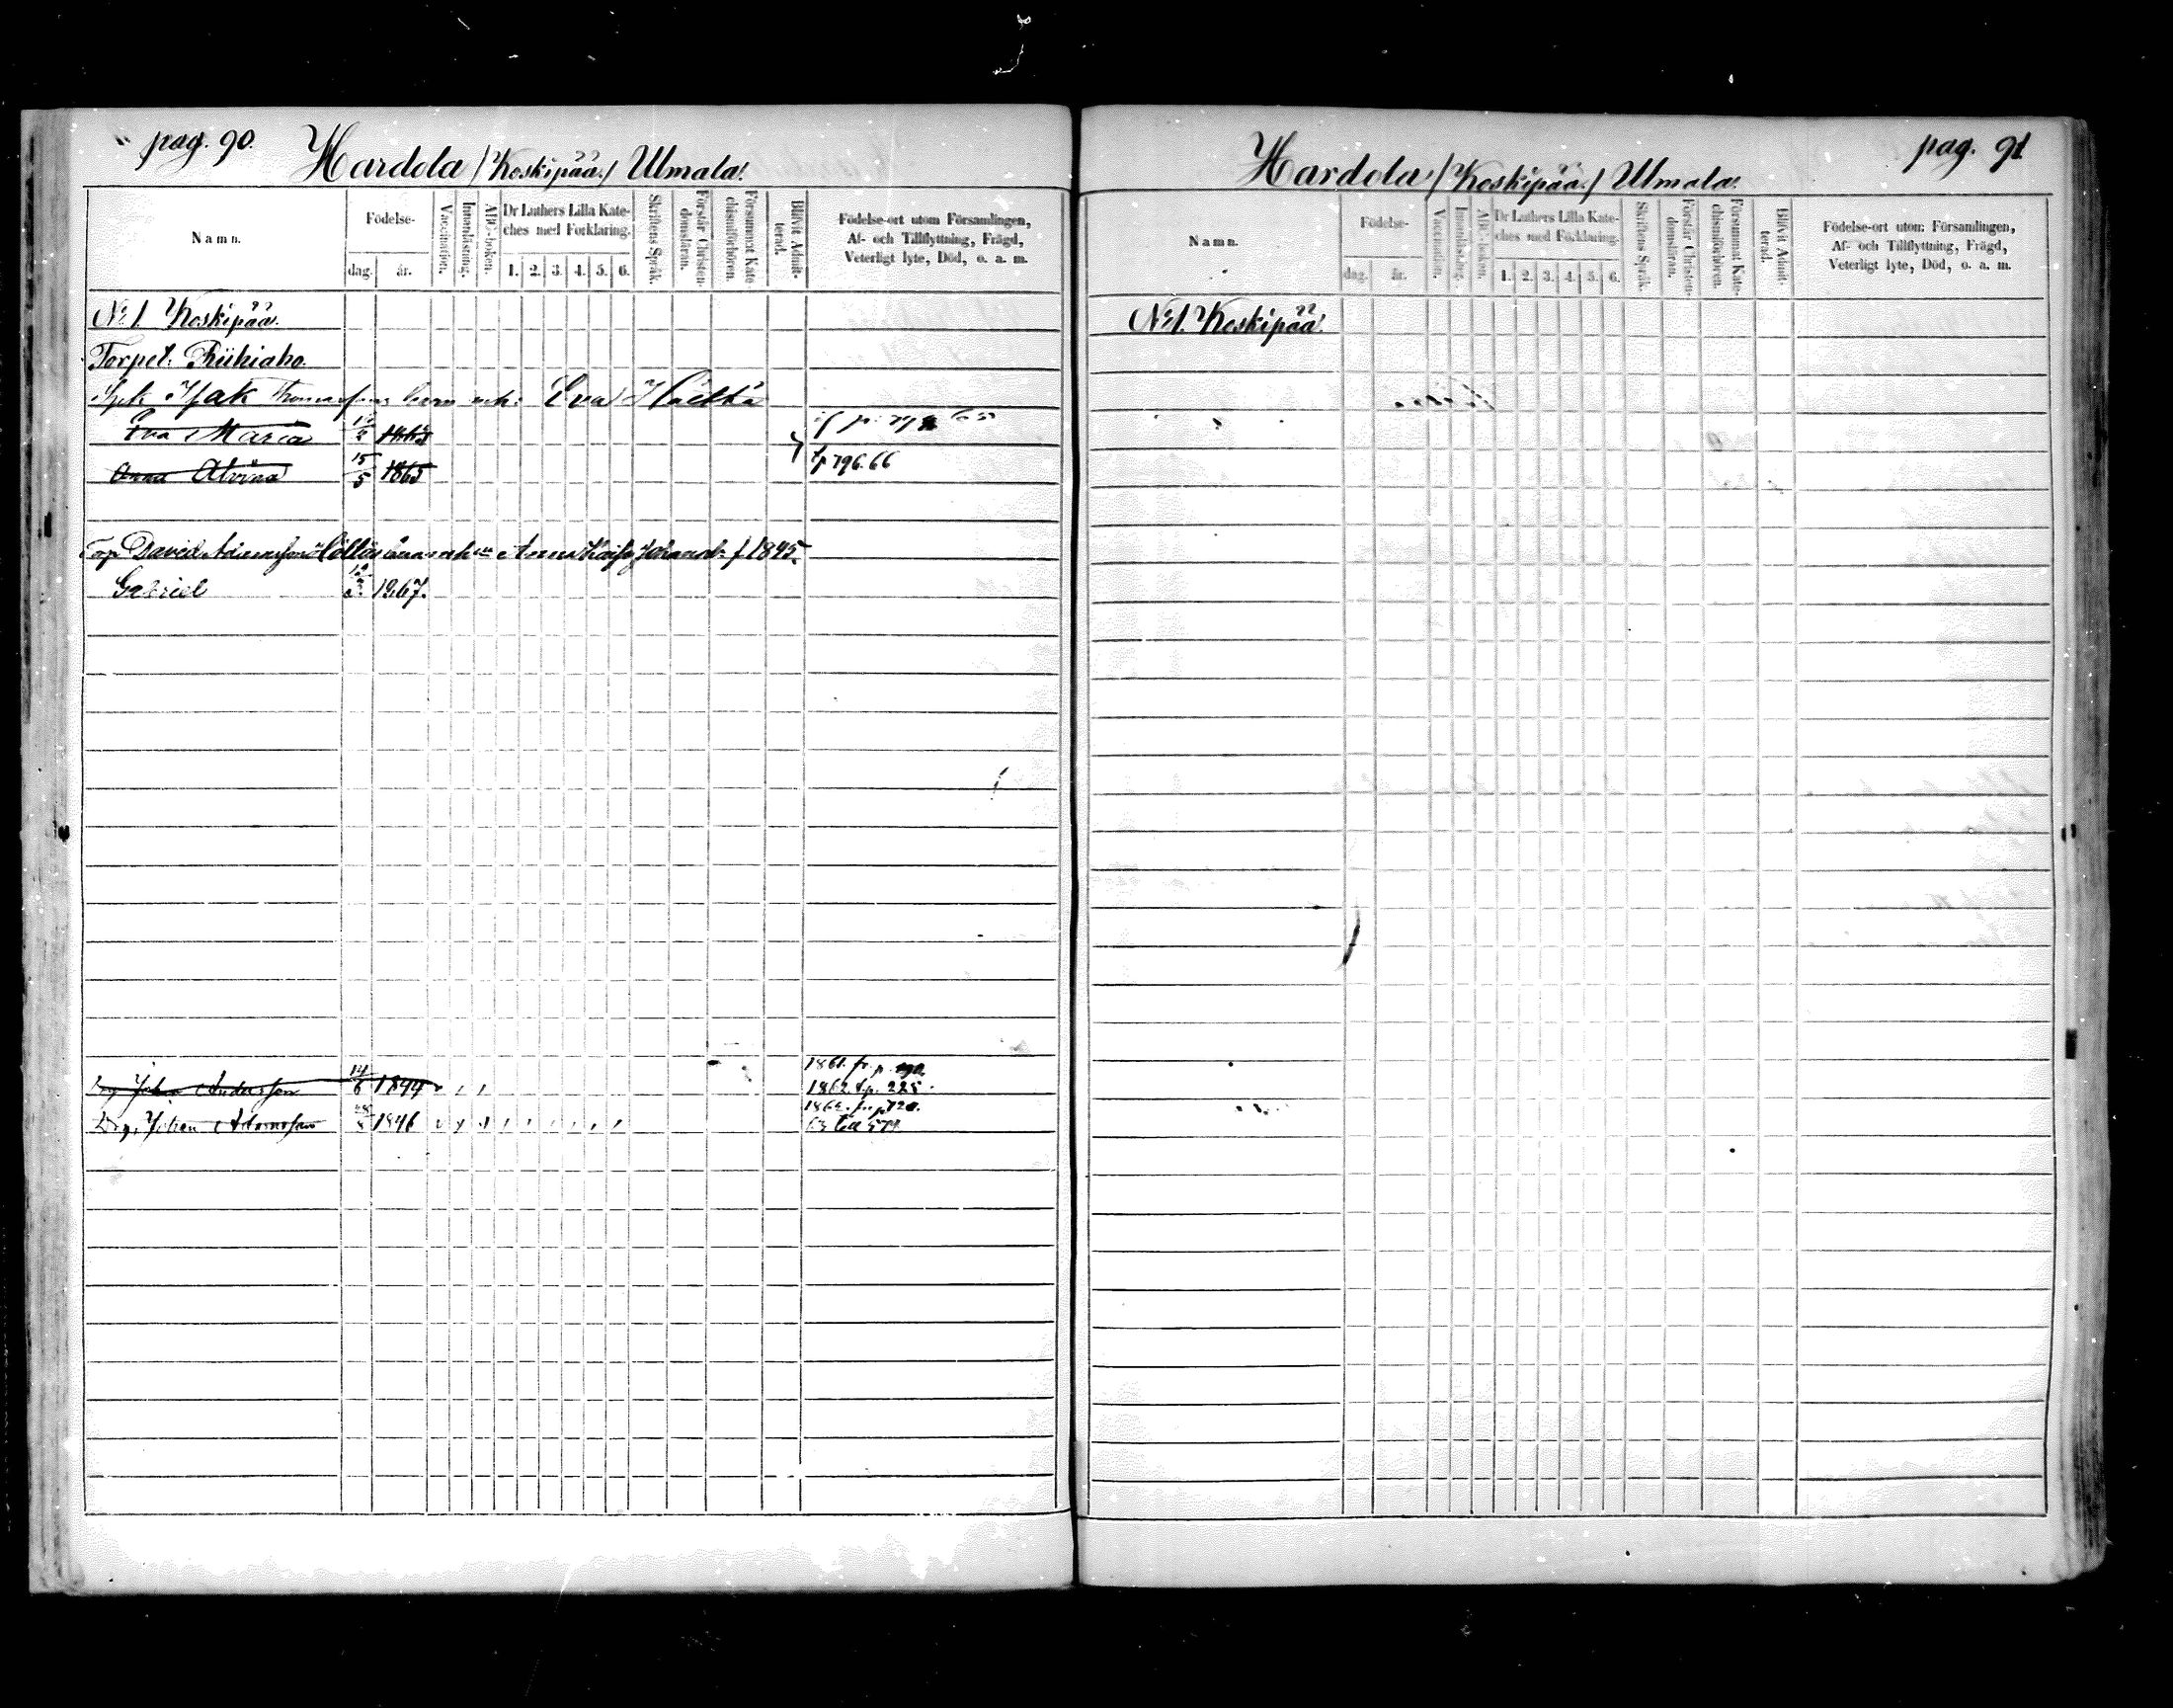 pag. 90.
Hardola /Koskipää./ Ulmala.
Namn.
Födelse-
dag.
år.
Vaccination.
Innanläsning.
ABC-boken.
Dr Luthers Lilla Kate-
ches med Förklaring.
1. 2. 3. 4. 5. 6.
Skriftens Språk.
Förstår Christen-
domsläran.
Försummat Kate-
chismiförhören.
Blifvit Admit-
terad.
Födelse-ort utom Församlingen,
Af- och Tillflyttning, Frägd,
Veterligt lyte, Död, o. a. m.
No 1 Koskipää.
Torpet: Riihiaho.
Isak barn Eva
Eva Maria
Anna Alvina 15/5 1865 tp 796.66
Torp David barn Anna Johansd. f 1845.
Gabriel 1867.
1861. fr. p.
Johan Andersson 14/6 1844 1862. t.p. 225.
Drg. Johan Adamsson 1846
pag. 91
Hardola /Koskipää./ Ulmala.
Namn.
Födelse-
dag.
år.
Vaccination.
Innanläsning.
ABC-boken.
Dr Luthers Lilla Kate-
ches med Förklaring.
1. 2. 3. 4. 5. 6.
Skriftens Språk.
Förstår Christen-
domsläran.
Försummat Kate-
chismiförhören.
Blifvit Admit-
terad.
Födelse-ort utom Församlingen,
Af- och Tillflyttning, Frägd,
Veterligt lyte, Död, o. a. m.
No 1. Koskipää.